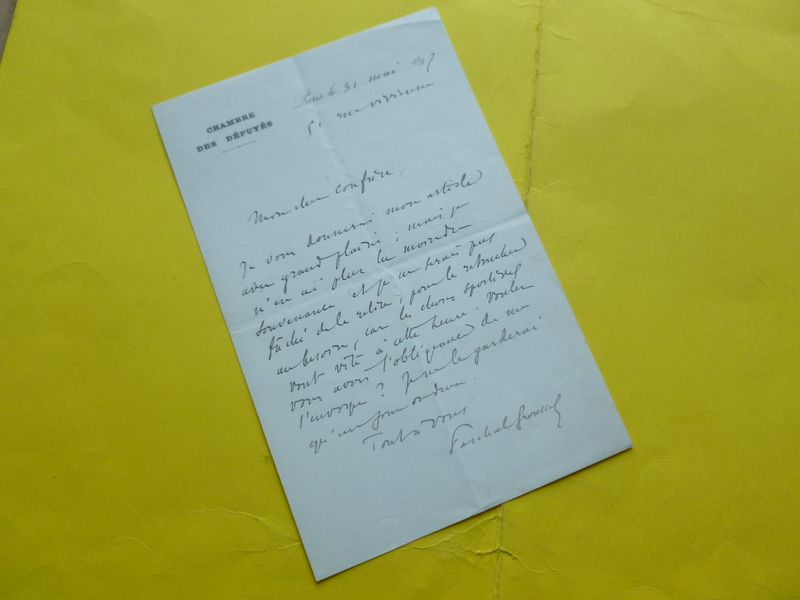 CHAMBRE
DES DÉPUTÉS
Paris le 31 mai 189
51 rue vivienne
Mon cher confrère,
Je vous donnerai mon article
avec grand plaisir ; mais je
n'en ai plus la moindre
souvenance et je ne serais pas
fâché de le relire, pour le retoucher
au besoin, car les choses sportives
vont vite à cette heure. Voulez
vous avoir l'obligeance de me
l'envoyer ? Je ne le garderai
qu'un jour ou deux.
Tout à vous
Paschal Grousset